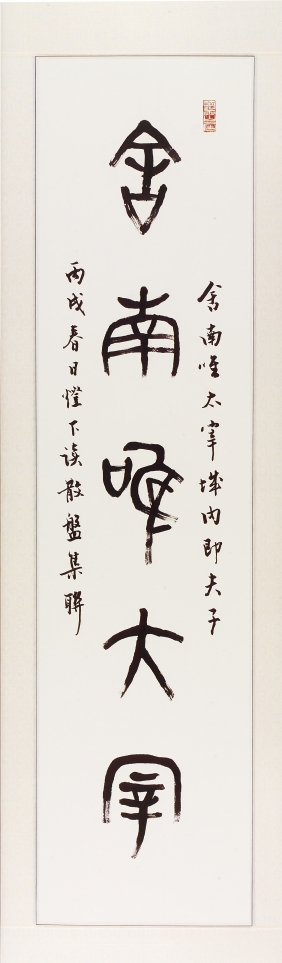 舍南唯太宰城内即夫子
舍南唯大宰
丙戌春日燈下读散盤集聯